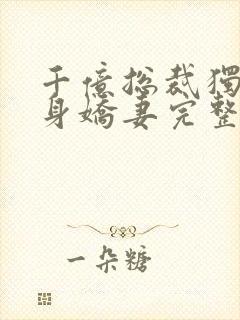 千億總裁獨
身嬌妻完整
一朵糖